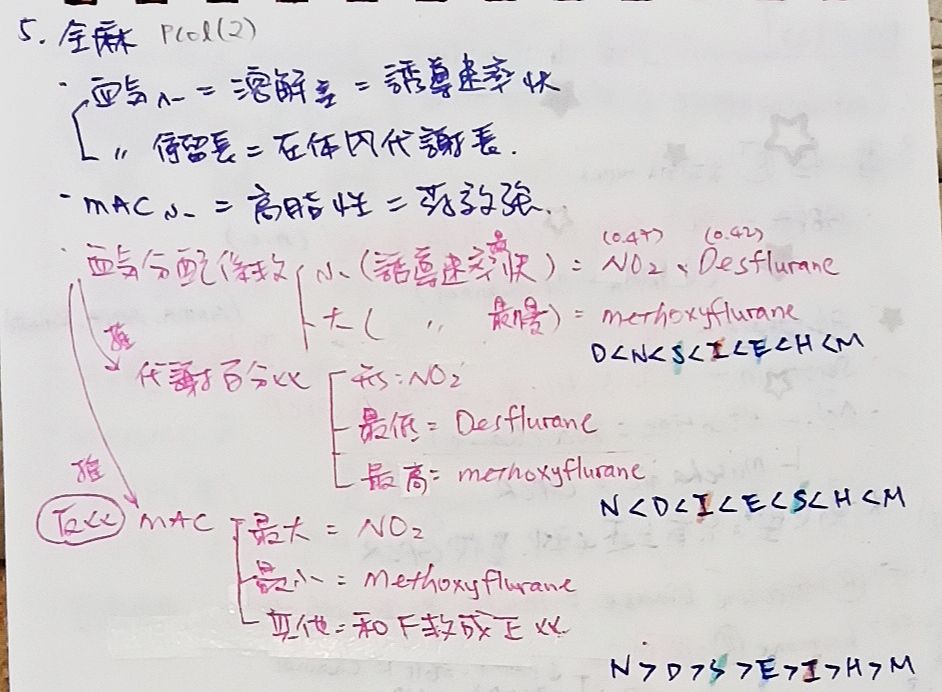 5. 全麻 Pcol(2)
· 血氣小 = 溶解差 = 誘導速率快
〃 停留長 = 在体內代謝長.
· MAC小 = 高脂性 = 藥效強.
· 血氣分配係數 小 (誘導速率最快) = (0.47) NO2、(0.42) Desflurane
大 ( 〃 最慢) = methoxyflurane
D<N<S<I<E<H<M
推
代謝百分比 无: NO2
最低 = Desflurane
最高 = methoxyflurane
推
N<D<I<E<S<H<M
反比 MAC 最大 = NO2
最小 = Methoxyflurane
其他 = 和F數成正比
N>D>S>E>I>H>M